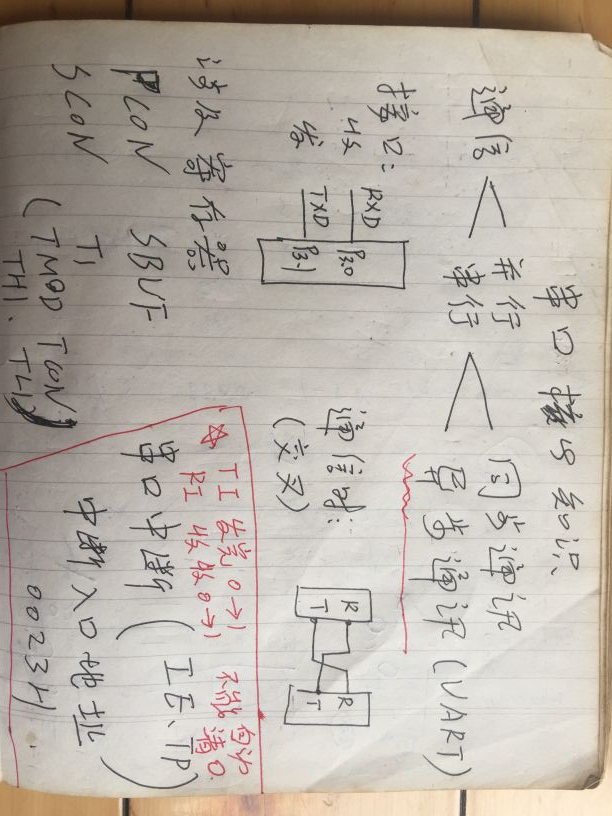 串口 接口 知识
通信 < 并行
串行 < 同步通讯
异步通讯 (UART)
接口:
收 RXD P3.0
发 TXD P3.1
通信时:
(交叉)
R T
R T
涉及 寄存器
PCON SBUF
SCON T1
(TMOD TCON
TH1. TL1)
☆ TI 发完 0→1
RI 收收 0→1
不能自动
清0.
串口中断 (IE、IP)
中断入口地址
0023H.